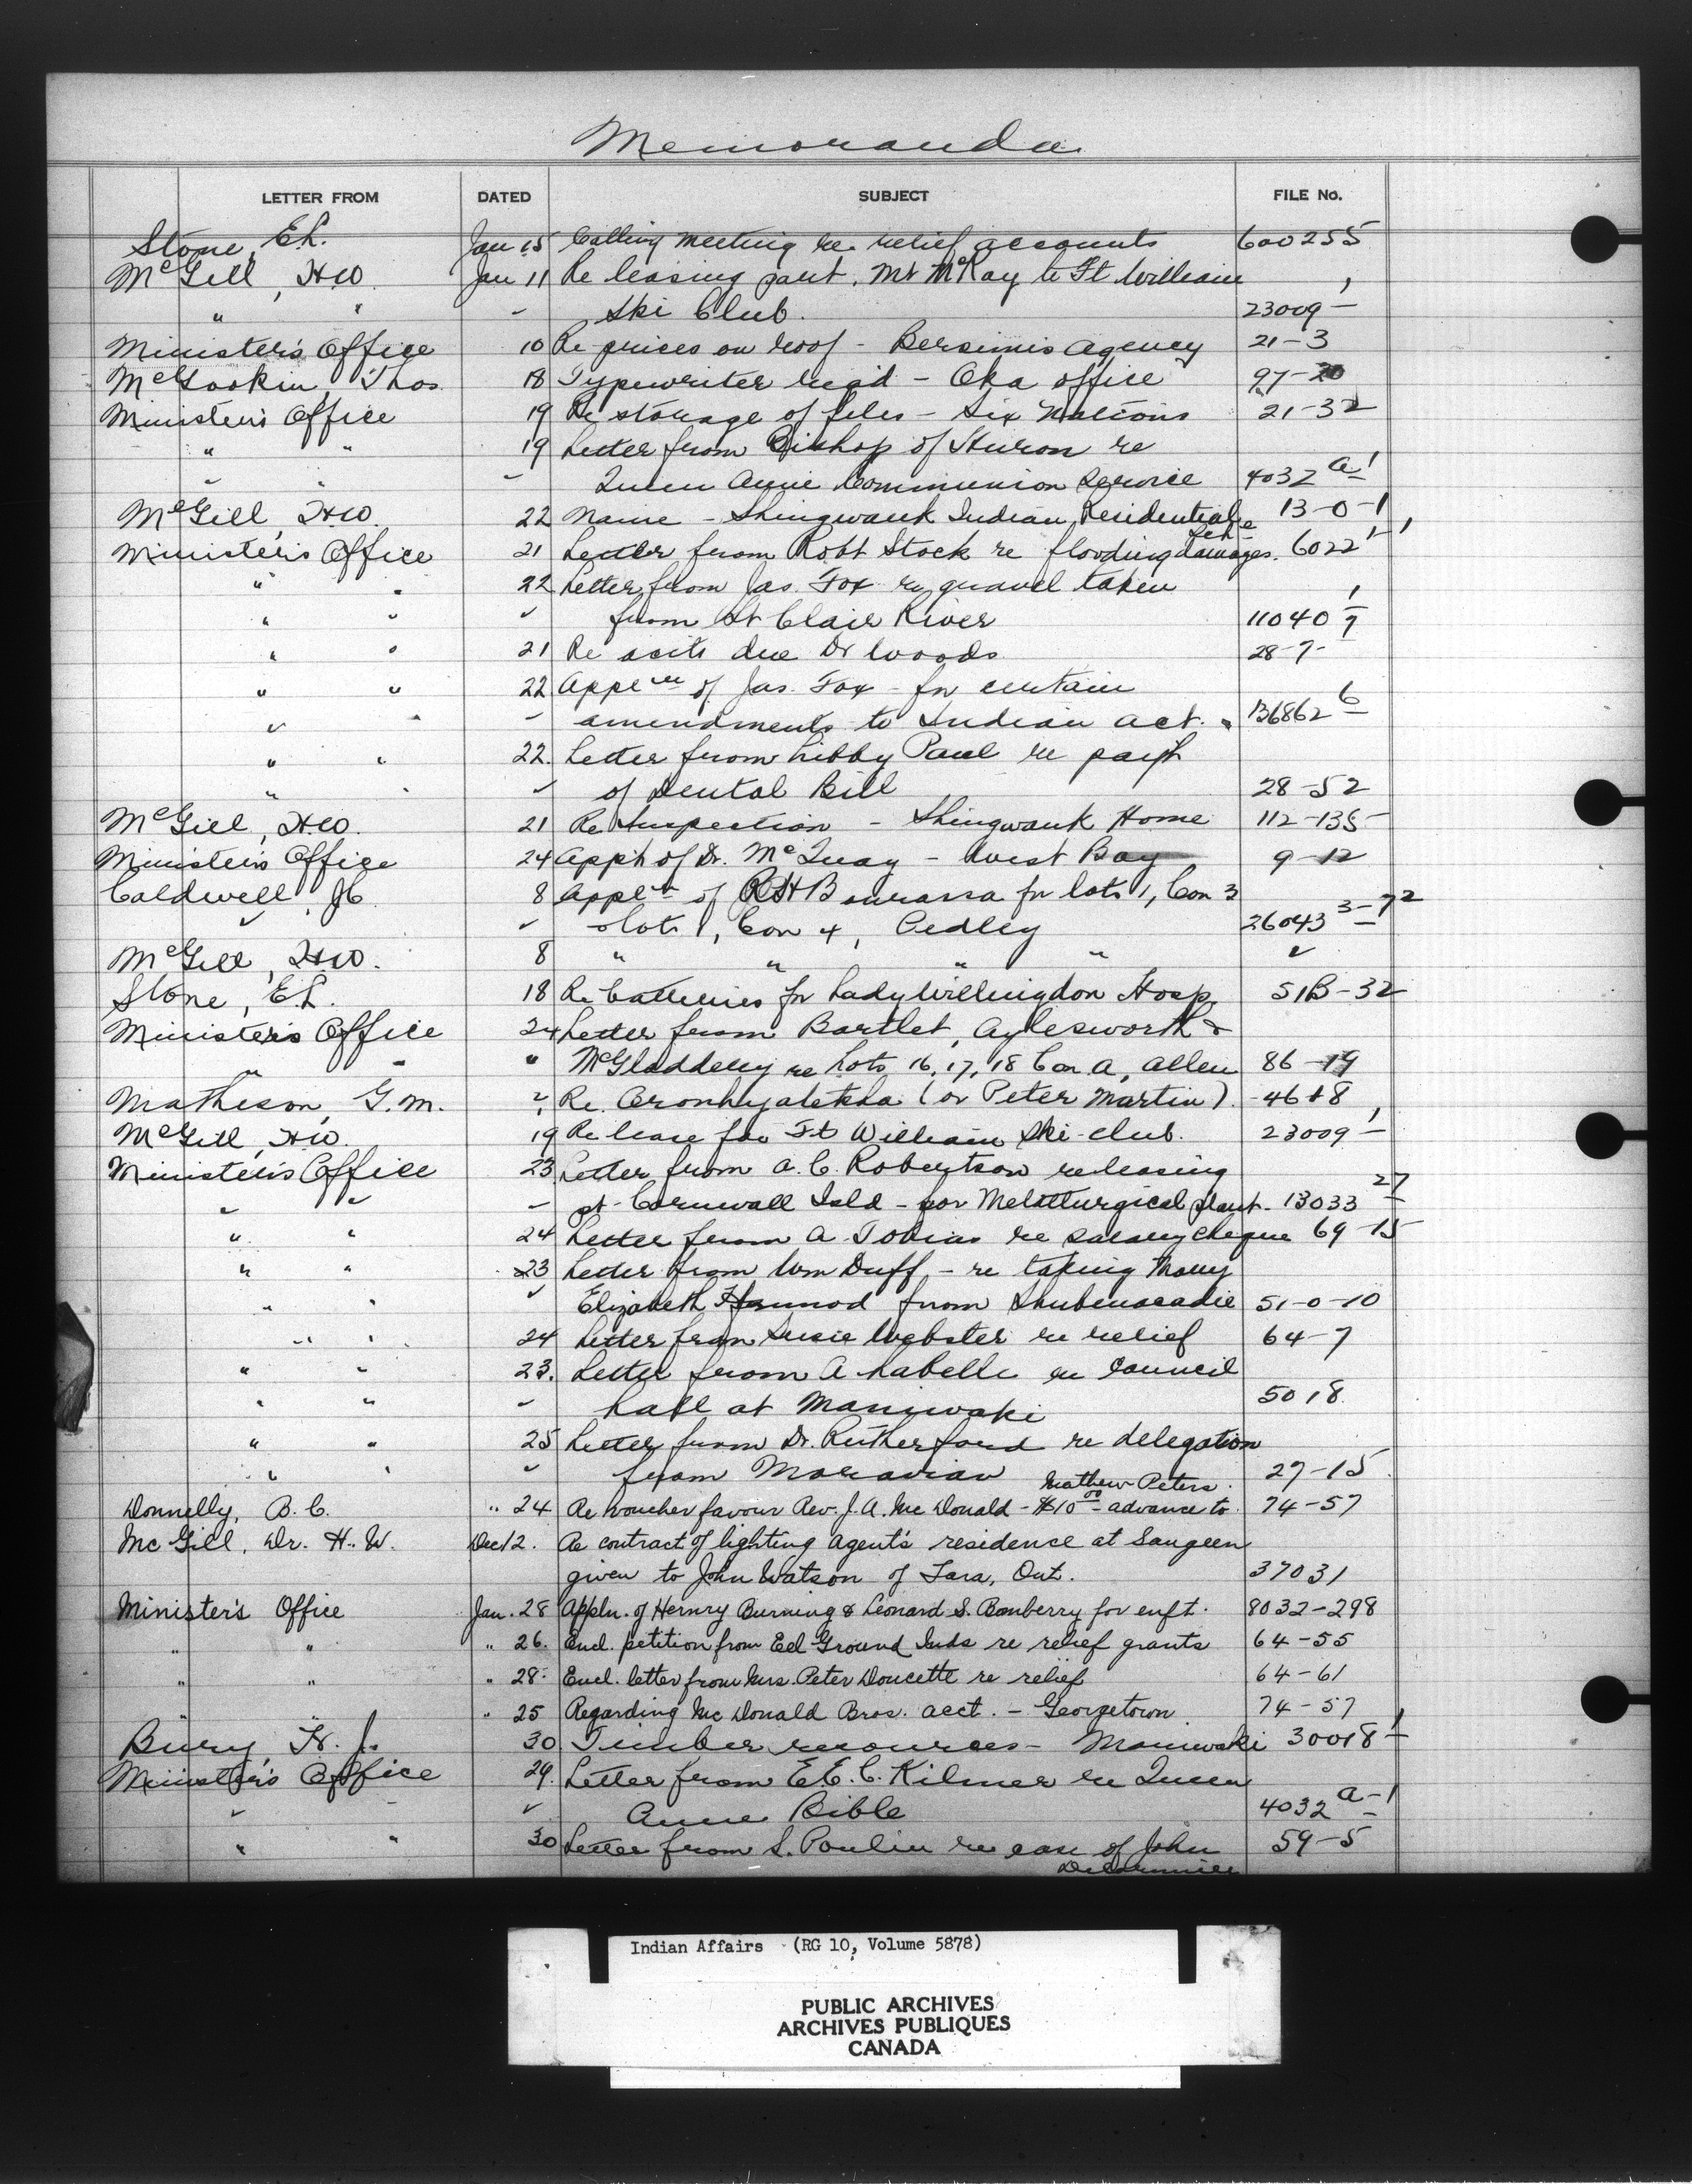 Memoranda
LETTER FROM DATED SUBJECT FILE No.
Stone, E.L. Jan 15 Calling meeting re relief accounts 600255
McGill, H.W. Jan 11 Re leasing part. Mt McKay to Ft William
" " " Ski Club. 23009-1
Minister's Office 10 Re prices on roof - Bersimis Agency 21-3
McGookin, Thos. 18 Typewriter req'd - Oka office 97-20
Minister's Office 19 Re storage of files - Six Nations 21-32
" " 19 Letter from Bishop of Huron re
" " " Queen Anne Communion Service 4032 A-1
McGill, H.W. 22 Name - Shingwauk Indian Residential 13-0-1
Sch-
Minister's Office 21 Letter from Robt Stock re flooding damages. 6022-1
" " 22 Letter from Jas. Fox re gravel taken
" " " from St Clair River 11040
" " 21 Re accts due Dr Woods 28-7-
" " 22 Appln of Jas. Fox - for certain
" " " amendments to Indian Act. 136862 6
" " 22. Letter from Libby Paul re paymt
" " " of Dental Bill 28-52
McGill, H.W. 21 Re Inspection - Shingwauk Home 112-135
Minister's Office 24 App't of Dr. McQuay - West Bay 9-12
Caldwell, J.C. 8 Appln of R H Bourassa for lots 1, Con 3
" " lots 1, Con 4, Pedley 26043 3-72
McGill, H.W. 8 " " " " "
Stone, E.L. 18 Re batteries for Lady Willingdon Hosp. 51B-32
Minister's Office 24 Letter from Bartlet, Aylesworth &
" " " McGladdery re Lots 16, 17, 18 Con A, Allen 86-19
Matheson, G.M. " Re. Oronhyatekha (or Peter Martin). 46+8
McGill, H.W. 19 Re lease for Ft William Ski-club. 23009-1
Minister's Office 23 Letter from A.C. Robertson re leasing
" " " pt Cornwall Isld - for Metallurgical plant. 13033 27
" " 24 Letter from A. Tobias re salary cheque 69-15
" " 23 Letter from Wm Duff - re taking Mary
" " " Elizabeth from Shubenacadie 51-0-10
" " 24 Letter from Susie Webster re relief 64-7
" " 23. Letter from A Labelle re council
" " " hall at Maniwaki 5018
" " 25 Letter from Dr. Rutherford re delegation
" " " from Moravian 27-15
Mathew Peters.
Donnelly, B.C. " 24 Re voucher favour Rev. J.A. McDonald - $10.00 - advance to 74-57
Mc Gill, Dr. H.W. Dec 12. Re contract of lighting Agent's residence at Saugeen
given to John Watson of Tara, Ont. 37031
Minister's Office Jan. 28 Appln. of Hernry Burning & Leonard S. Bomberry for enft. 8032-298
" " " 26. Encl. petition from Eel Ground Inds re relief grants 64-55
" " " 28. Encl. letter from Mrs. Peter Doucette re relief 64-61
" " " 25 Regarding Mc Donald Bros. acct. - Georgetown 74-57
Bury, H.J. 30 Timber resources - Maniwaki 30018-1
Minister's Office 29. Letter from E.E.C. Kilmer re Queen
" " " Anne Bible 4032 A-1
" " 30 Letter from S. Poulin re case of John 59-5
Indian Affairs (RG 10, Volume 5878)
PUBLIC ARCHIVES
ARCHIVES PUBLIQUES
CANADA